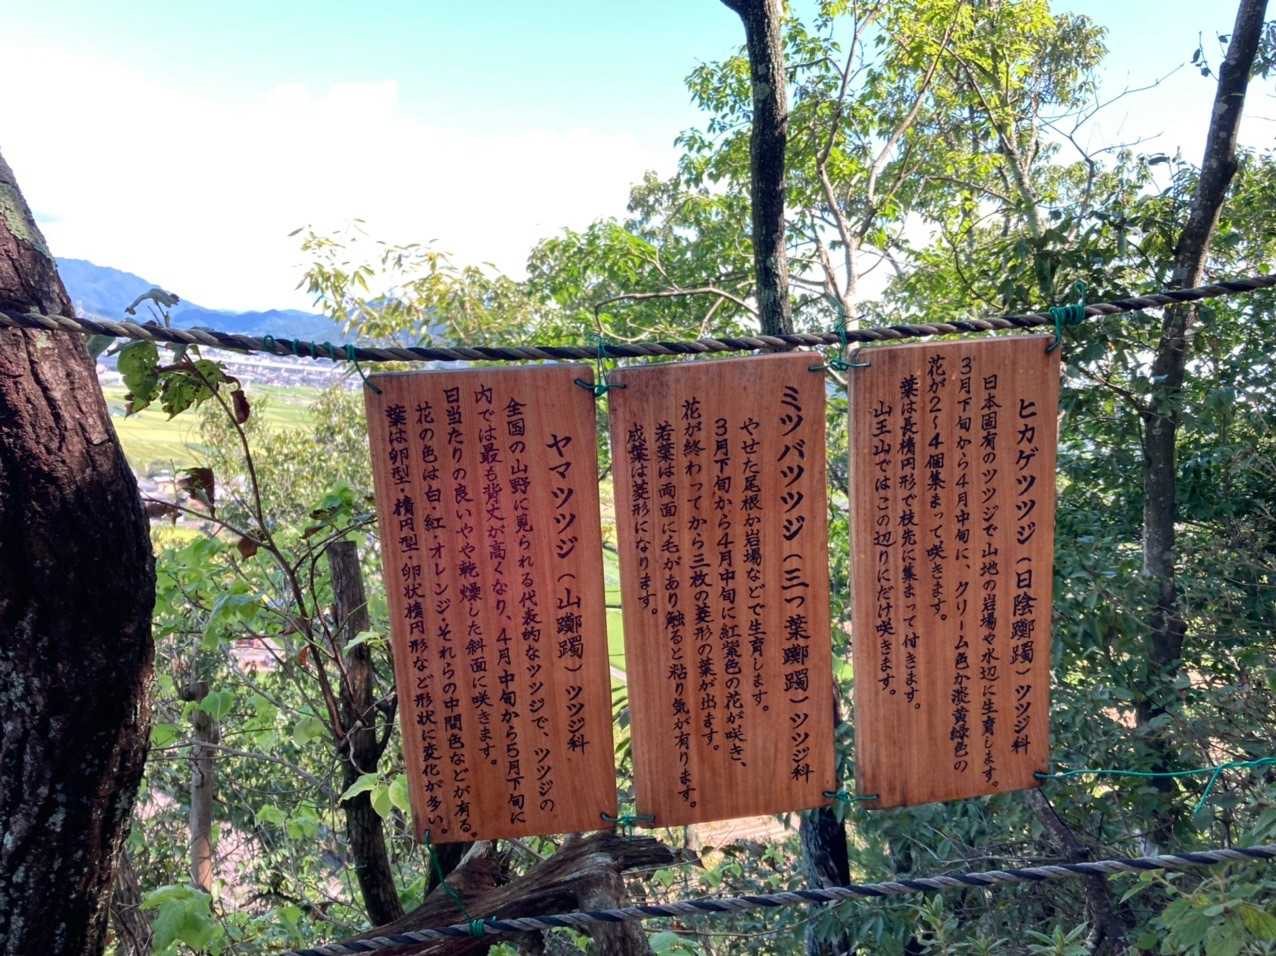 ヒカゲツツジ(日陰躑躅)ツツジ科
日本固有のツツジで山地の岩場や水辺に生育します。
3月下旬から4月中旬に、クリーム色か淡黄緑色の
花が2〜4個集まって咲きます。
葉は長楕円形で枝先に集まって付きます。
山王山ではこの辺りにだけ咲きます。
ミツバツツジ(三つ葉躑躅)ツツジ科
やせた尾根か岩場などで生育します。
3月下旬から4月中旬に紅紫色の花が咲き、
花が終わってから三枚の菱形の葉が出ます。
若葉は両面に毛があり触ると粘り気が有ります。
成葉は菱形になります。
ヤマツツジ(山躑躅)ツツジ科
全国の山野に見られる代表的なツツジで、ツツジの
内では最も背丈が高くなり、4月中旬から5月下旬に
日当たりの良いやや乾燥した斜面に咲きます。
花の色は白・紅・オレンジ・それらの中間色などが有る。
葉は卵型・楕円型・卵状楕円形など形状に変化が多い。